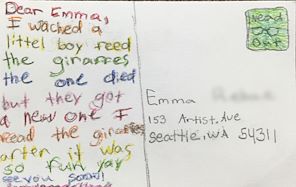 Dear Emma,
I wached a
littel boy feed
the giraffes
the one died
but they got
a new one I
fead the giraffes
arter it was
so fun yay
see you soon!
Head
Out
Emma
153 Artist. Ave
seattle, WA 54311